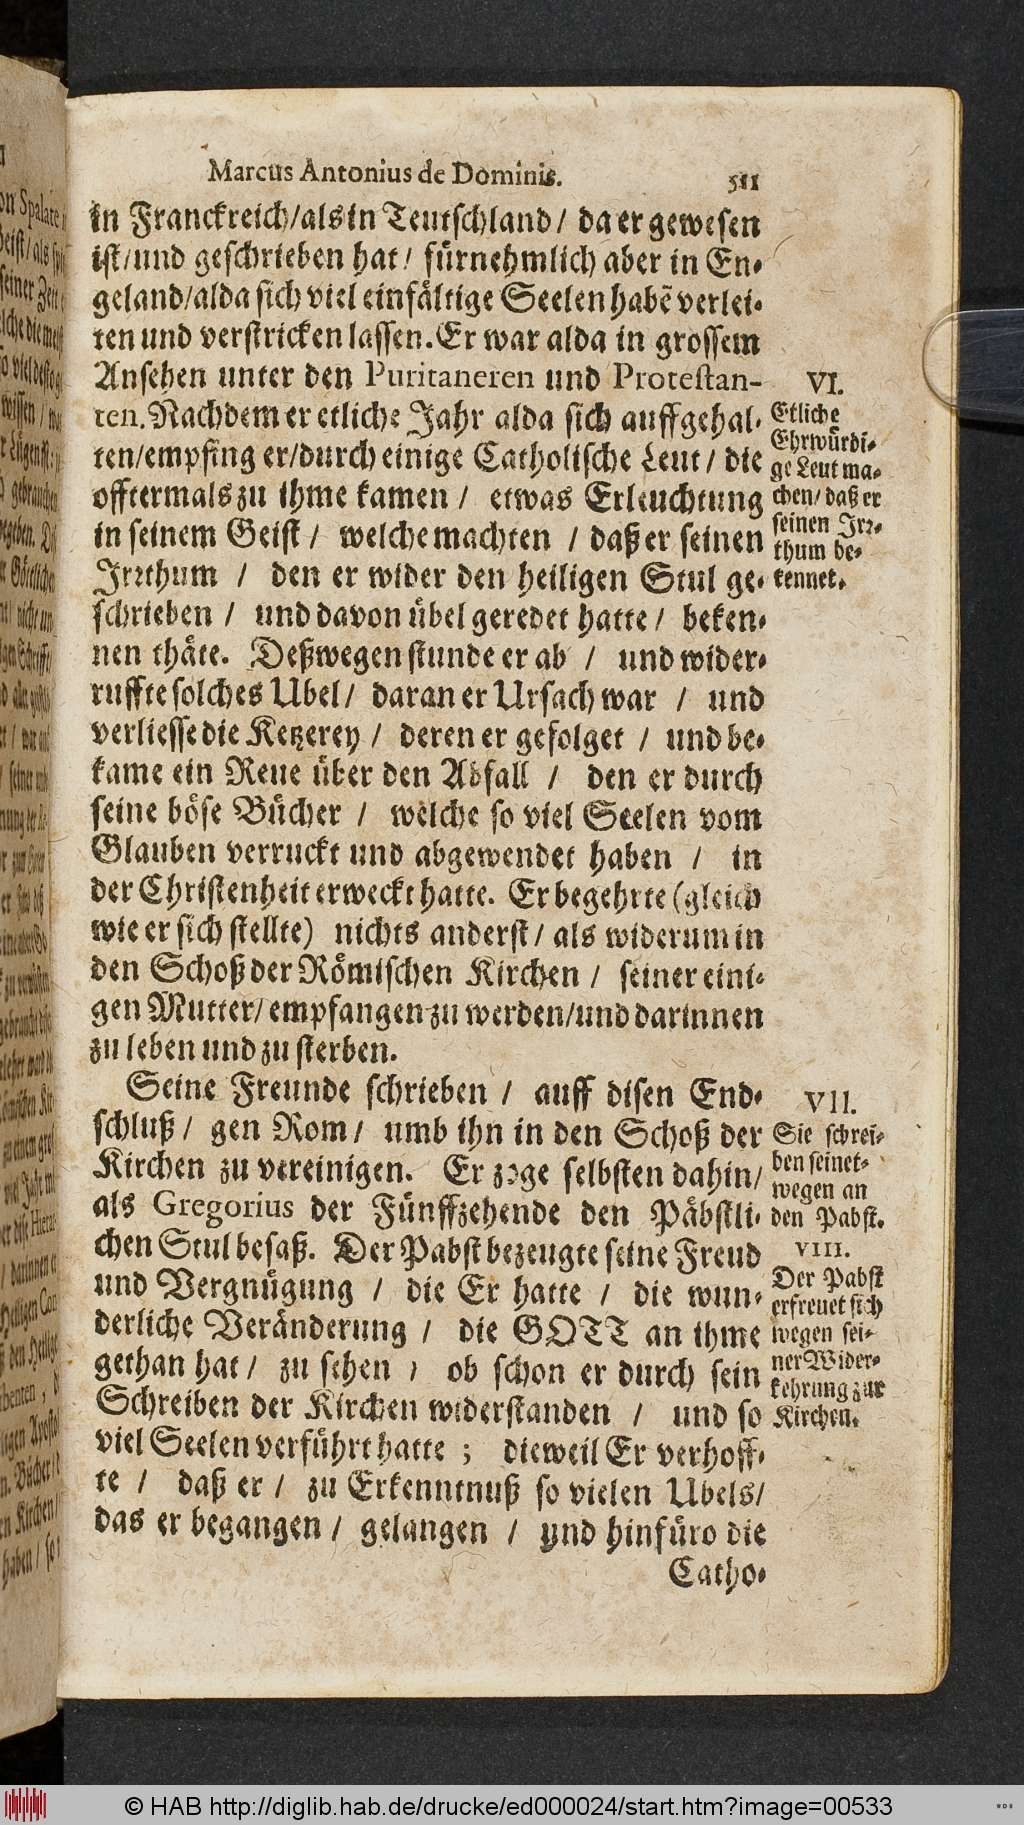 Marcus Antonius de Dominis. 511
in Franckreich/als in Teutschland/ da er gewesen
ist/und geschrieben hat/ fürnehmlich aber in En-
geland/alda sich viel einfältige Seelen habẽ verlei-
ten und verstricken lassen. Er war alda in grossem
Ansehen unter den Puritaneren und Protestan-
ten. Nachdem er etliche Jahr alda sich auffgehal-
ten/empfing er/durch einige Catholische Leut/ die
offtermals zu ihme kamen/ etwas Erleuchtung
in seinem Geist/ welche machten/ daß er seinen
Irrthum/ den er wider den heiligen Stul ge-
schrieben/ und davon übel geredet hatte/ beken-
nen thäte. Deßwegen stunde er ab/ und wider-
ruffte solches Ubel/ daran er Ursach war/ und
verliesse die Ketzerey/ deren er gefolget/ und be-
kame ein Reue über den Abfall/ den er durch
seine böse Bücher/ welche so viel Seelen vom
Glauben verruckt und abgewendet haben/ in
der Christenheit erweckt hatte. Er begehrte (gleich
wie er sich stellte) nichts anderst/ als widerum in
den Schoß der Römischen Kirchen/ seiner eini-
gen Mutter/ empfangen zu werden/und darinnen
zu leben und zu sterben.
VI.
Etliche
Ehrwürdi-
ge Leut ma-
chen/ daß er
seinen Irr-
thum be-
kennet.
Seine Freunde schrieben/ auff disen End-
schluß/ gen Rom/ umb ihn in den Schoß der
Kirchen zu vereinigen. Er zoge selbsten dahin/
als Gregorius der Fünffzehende den Päbstli-
chen Stul besaß. Der Pabst bezeugte seine Freud
und Vergnügung/ die Er hatte/ die wun-
derliche Veränderung/ die GOTT an ihme
gethan hat/ zu sehen, ob schon er durch sein
Schreiben der Kirchen widerstanden/ und so
viel Seelen verführt hatte; dieweil Er verhoff-
te/ daß er/ zu Erkenntnuß so vielen Ubels/
das er begangen/ gelangen/ und hinfüro die
Catho-
VII.
Sie schrei-
ben seinet-
wegen an
den Pabst.
VIII.
Der Pabst
erfreuet sich
wegen sei-
ner Wider-
kehrung zur
Kirchen.
© HAB http://diglib.hab.de/drucke/ed000024/start.htm?image=00533